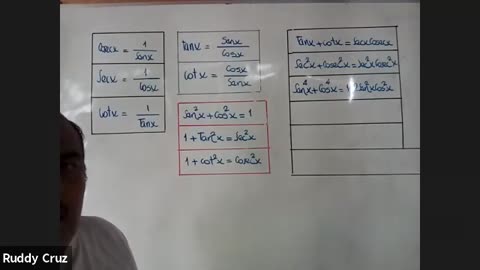 Cosecx = 1/Senx
Secx = 1/Cosx
Cotx = 1/Tanx
Tanx = Senx/Cosx
Cotx = Cosx/Senx
Sen²x + Cos²x = 1
1 + Tan²x = Sec²x
1 + Cot²x = Cosec²x
Tanx + Cotx = Secx Cosecx
Sec²x + Cosec²x = Sec²x Cosec²x
Sen⁴x + Cos⁴x = 1 - 2Sen²x Cos²x
Ruddy Cruz